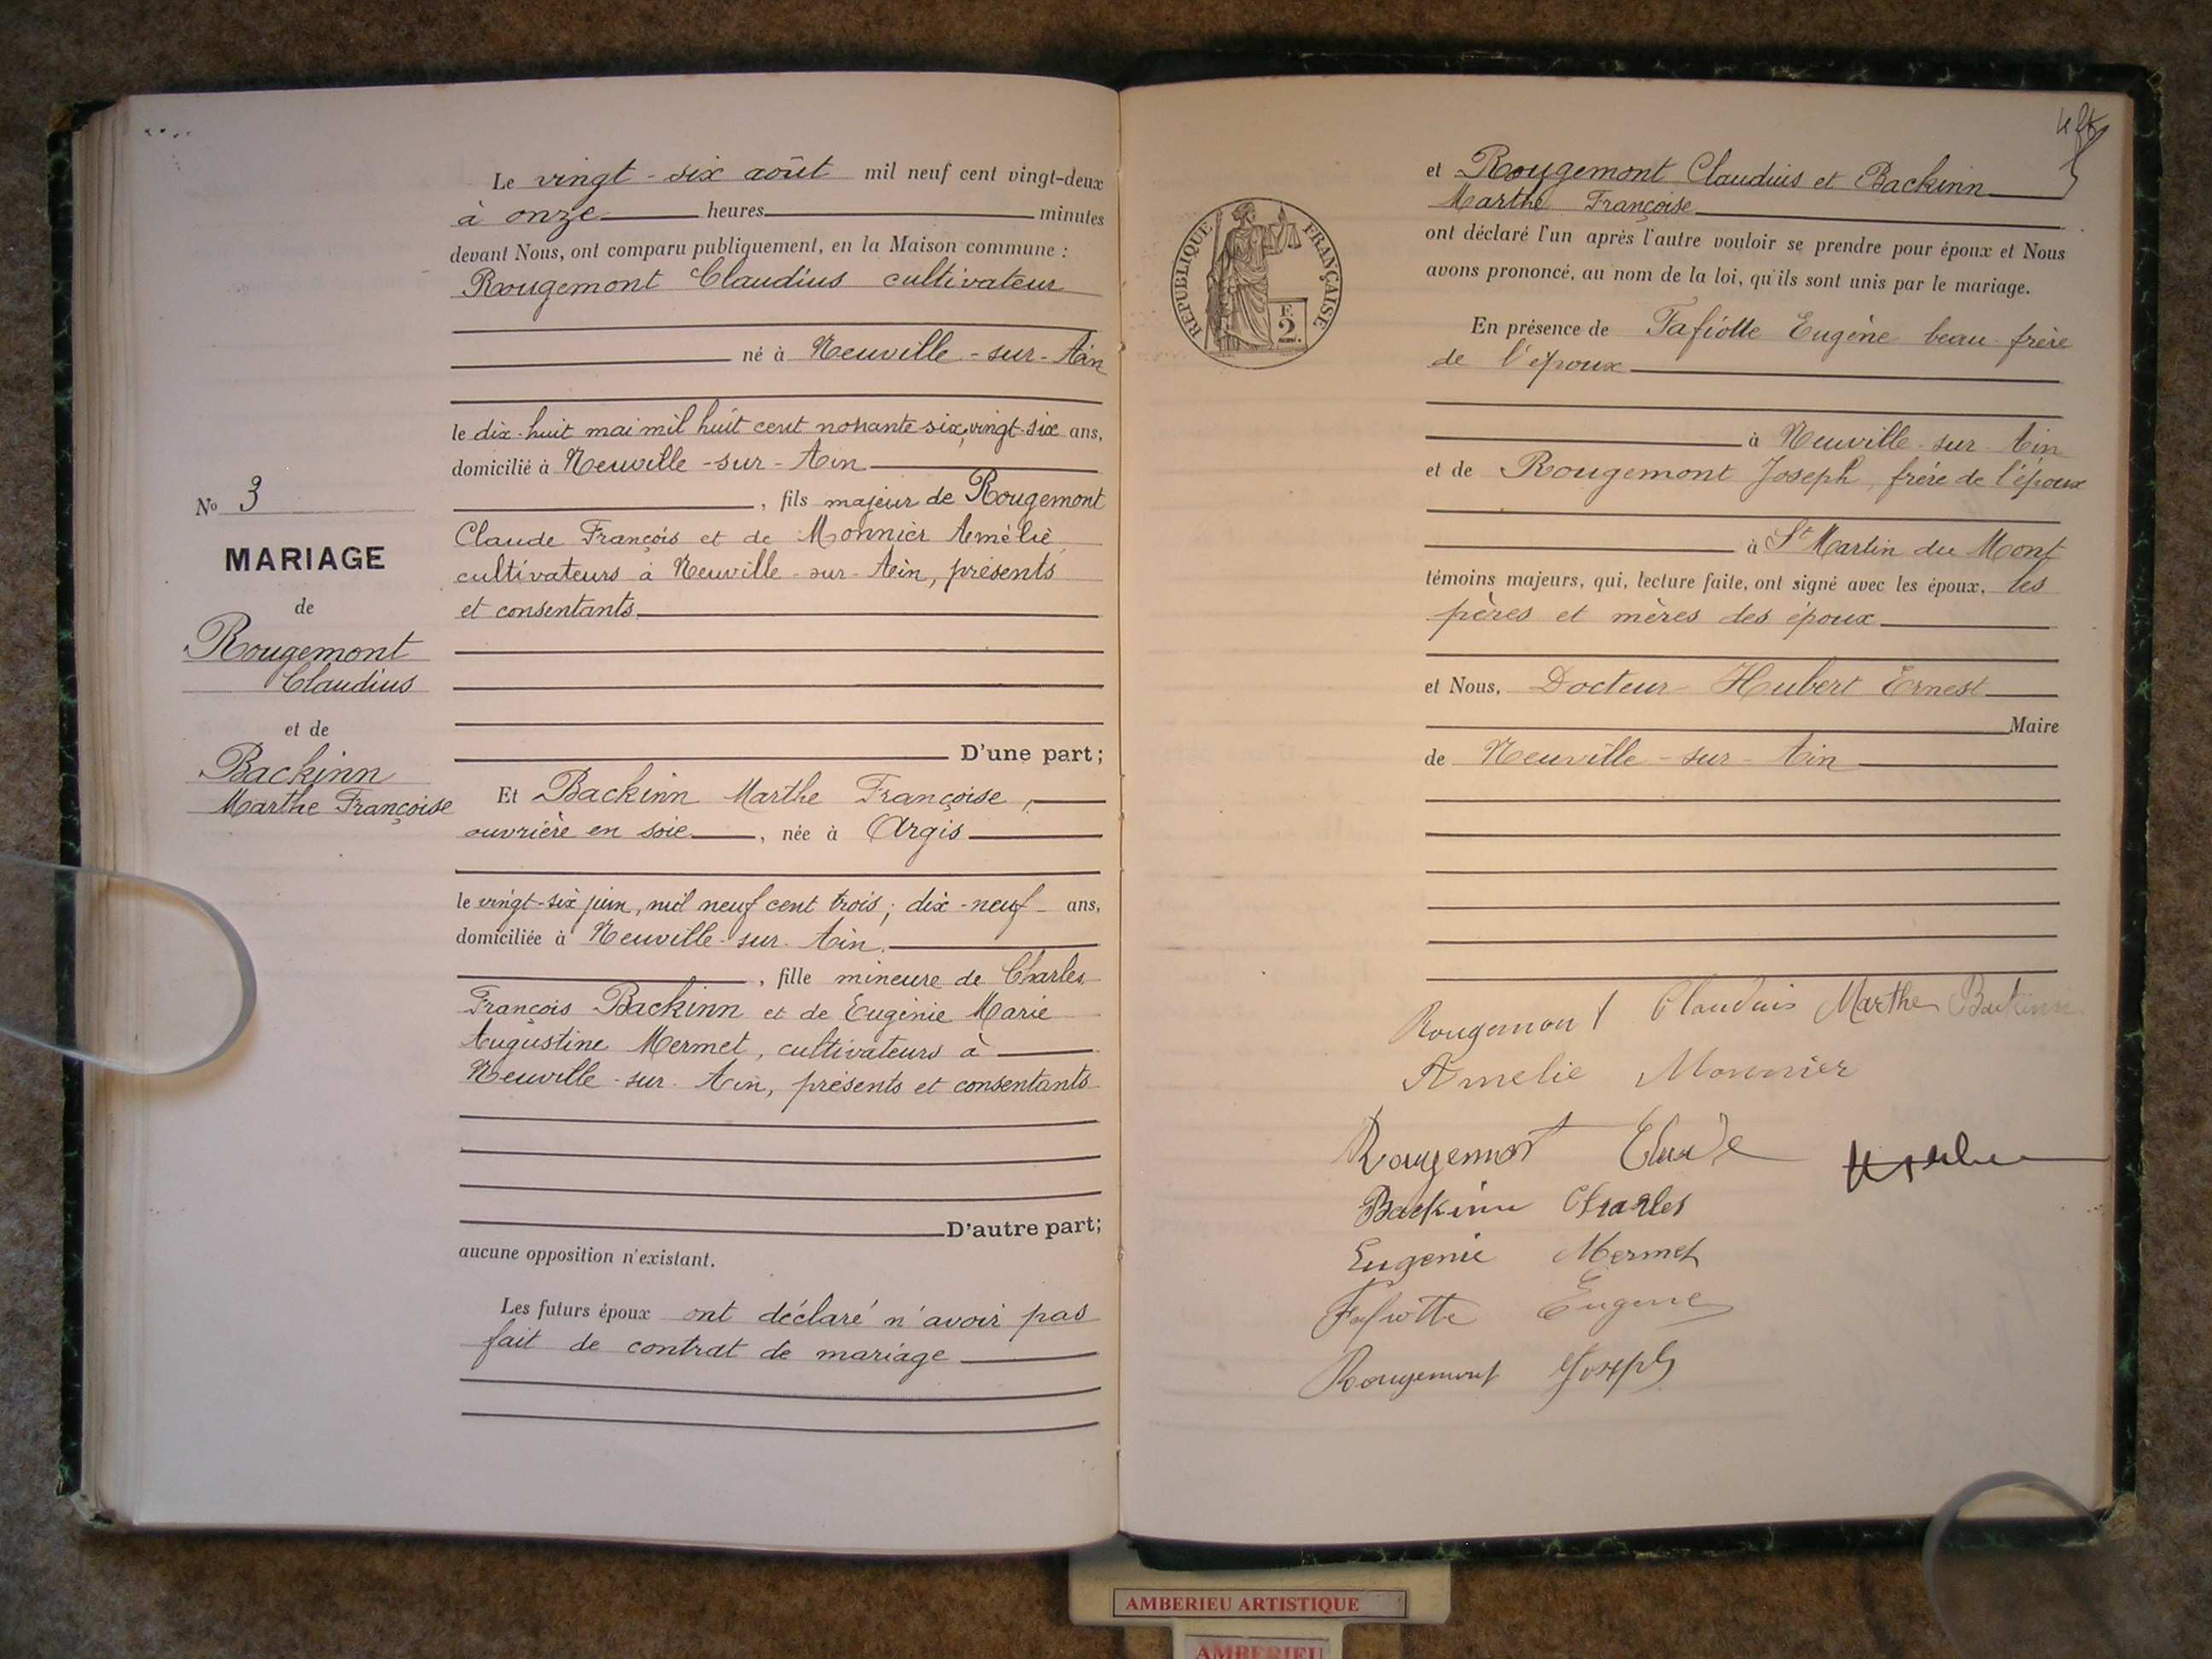 Le vingt-six août mil neuf cent vingt-deux
à onze heures minutes
devant Nous, ont comparu publiquement, en la Maison commune :
Rougemont Claudius cultivateur
né à Neuville-sur-Ain
le dix-huit mai mil huit cent nonante six, vingt-six ans,
domicilié à Neuville-sur-Ain
, fils majeur de Rougemont
Claude François et de Monnier Amélie
cultivateurs à Neuville-sur-Ain, présents
et consentants
D'une part;
No 3
MARIAGE
de
Rougemont
Claudius
et de
Backinn
Marthe Françoise
Et Backinn Marthe Françoise,
ouvrière en soie, née à Argis
le vingt-six juin, mil neuf cent trois; dix-neuf ans,
domiciliée à Neuville-sur-Ain
, fille mineure de Charles
François Backinn et de Eugénie Marie
Augustine Mermet, cultivateurs à
Neuville-sur-Ain, présents et consentants
D'autre part;
aucune opposition n'existant.
Les futurs époux ont déclaré n'avoir pas
fait de contrat de mariage
RÉPUBLIQUE FRANÇAISE
F.
2
et Rougemont Claudius et Backinn
Marthe Françoise
ont déclaré l'un après l'autre vouloir se prendre pour époux et Nous
avons prononcé, au nom de la loi, qu'ils sont unis par le mariage.
En présence de Fafiotte Eugène beau-frère
de l'époux
à Neuville-sur-Ain
et de Rougemont Joseph, frère de l'époux
à St Martin du Mont
témoins majeurs, qui, lecture faite, ont signé avec les époux, les
pères et mères des époux
et Nous, Docteur Hubert Ernest
Maire
de Neuville-sur-Ain
Rougemont Claudius Marthe Backinn
Amelie Monnier
Rougemont Claude
Backinn Charles
Eugenie Mermet
Fafiotte Eugene
Rougemont Joseph
AMBERIEU ARTISTIQUE
AMBERIEU